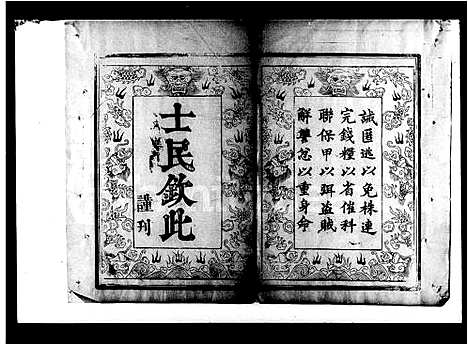 誡匿逃以免株連
完錢糧以省催科
聯保甲以弭盜賊
解讐忿以重身命
士民欽此
謹刊